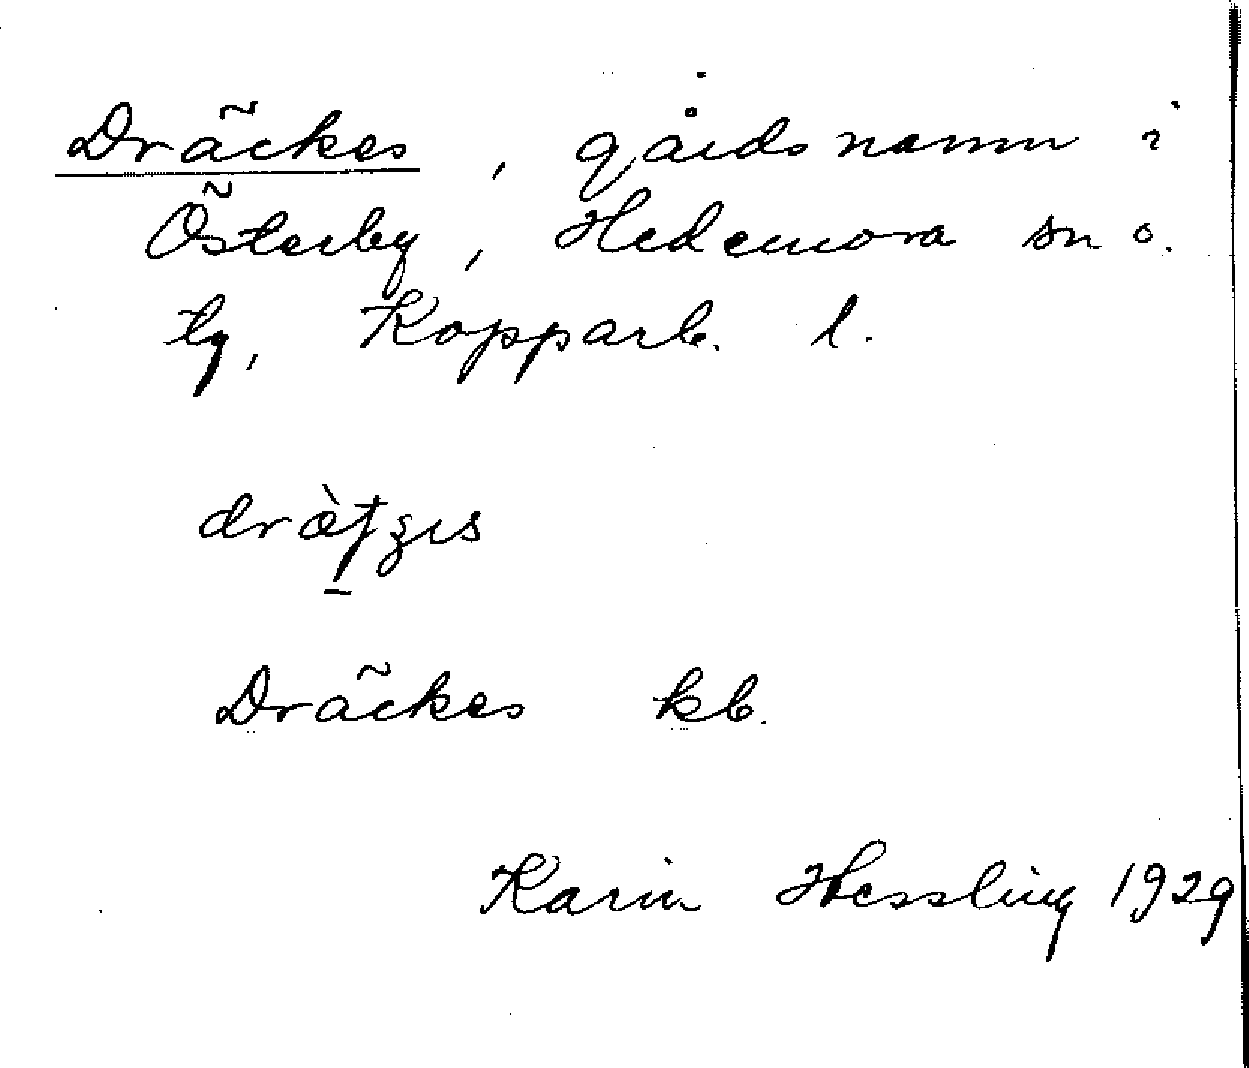 Dräckes, gårdsnamn i
Österby, Hedemora sn o.
tg, Kopparb. l.
Dräckes kb.
Karin Hessling 1929